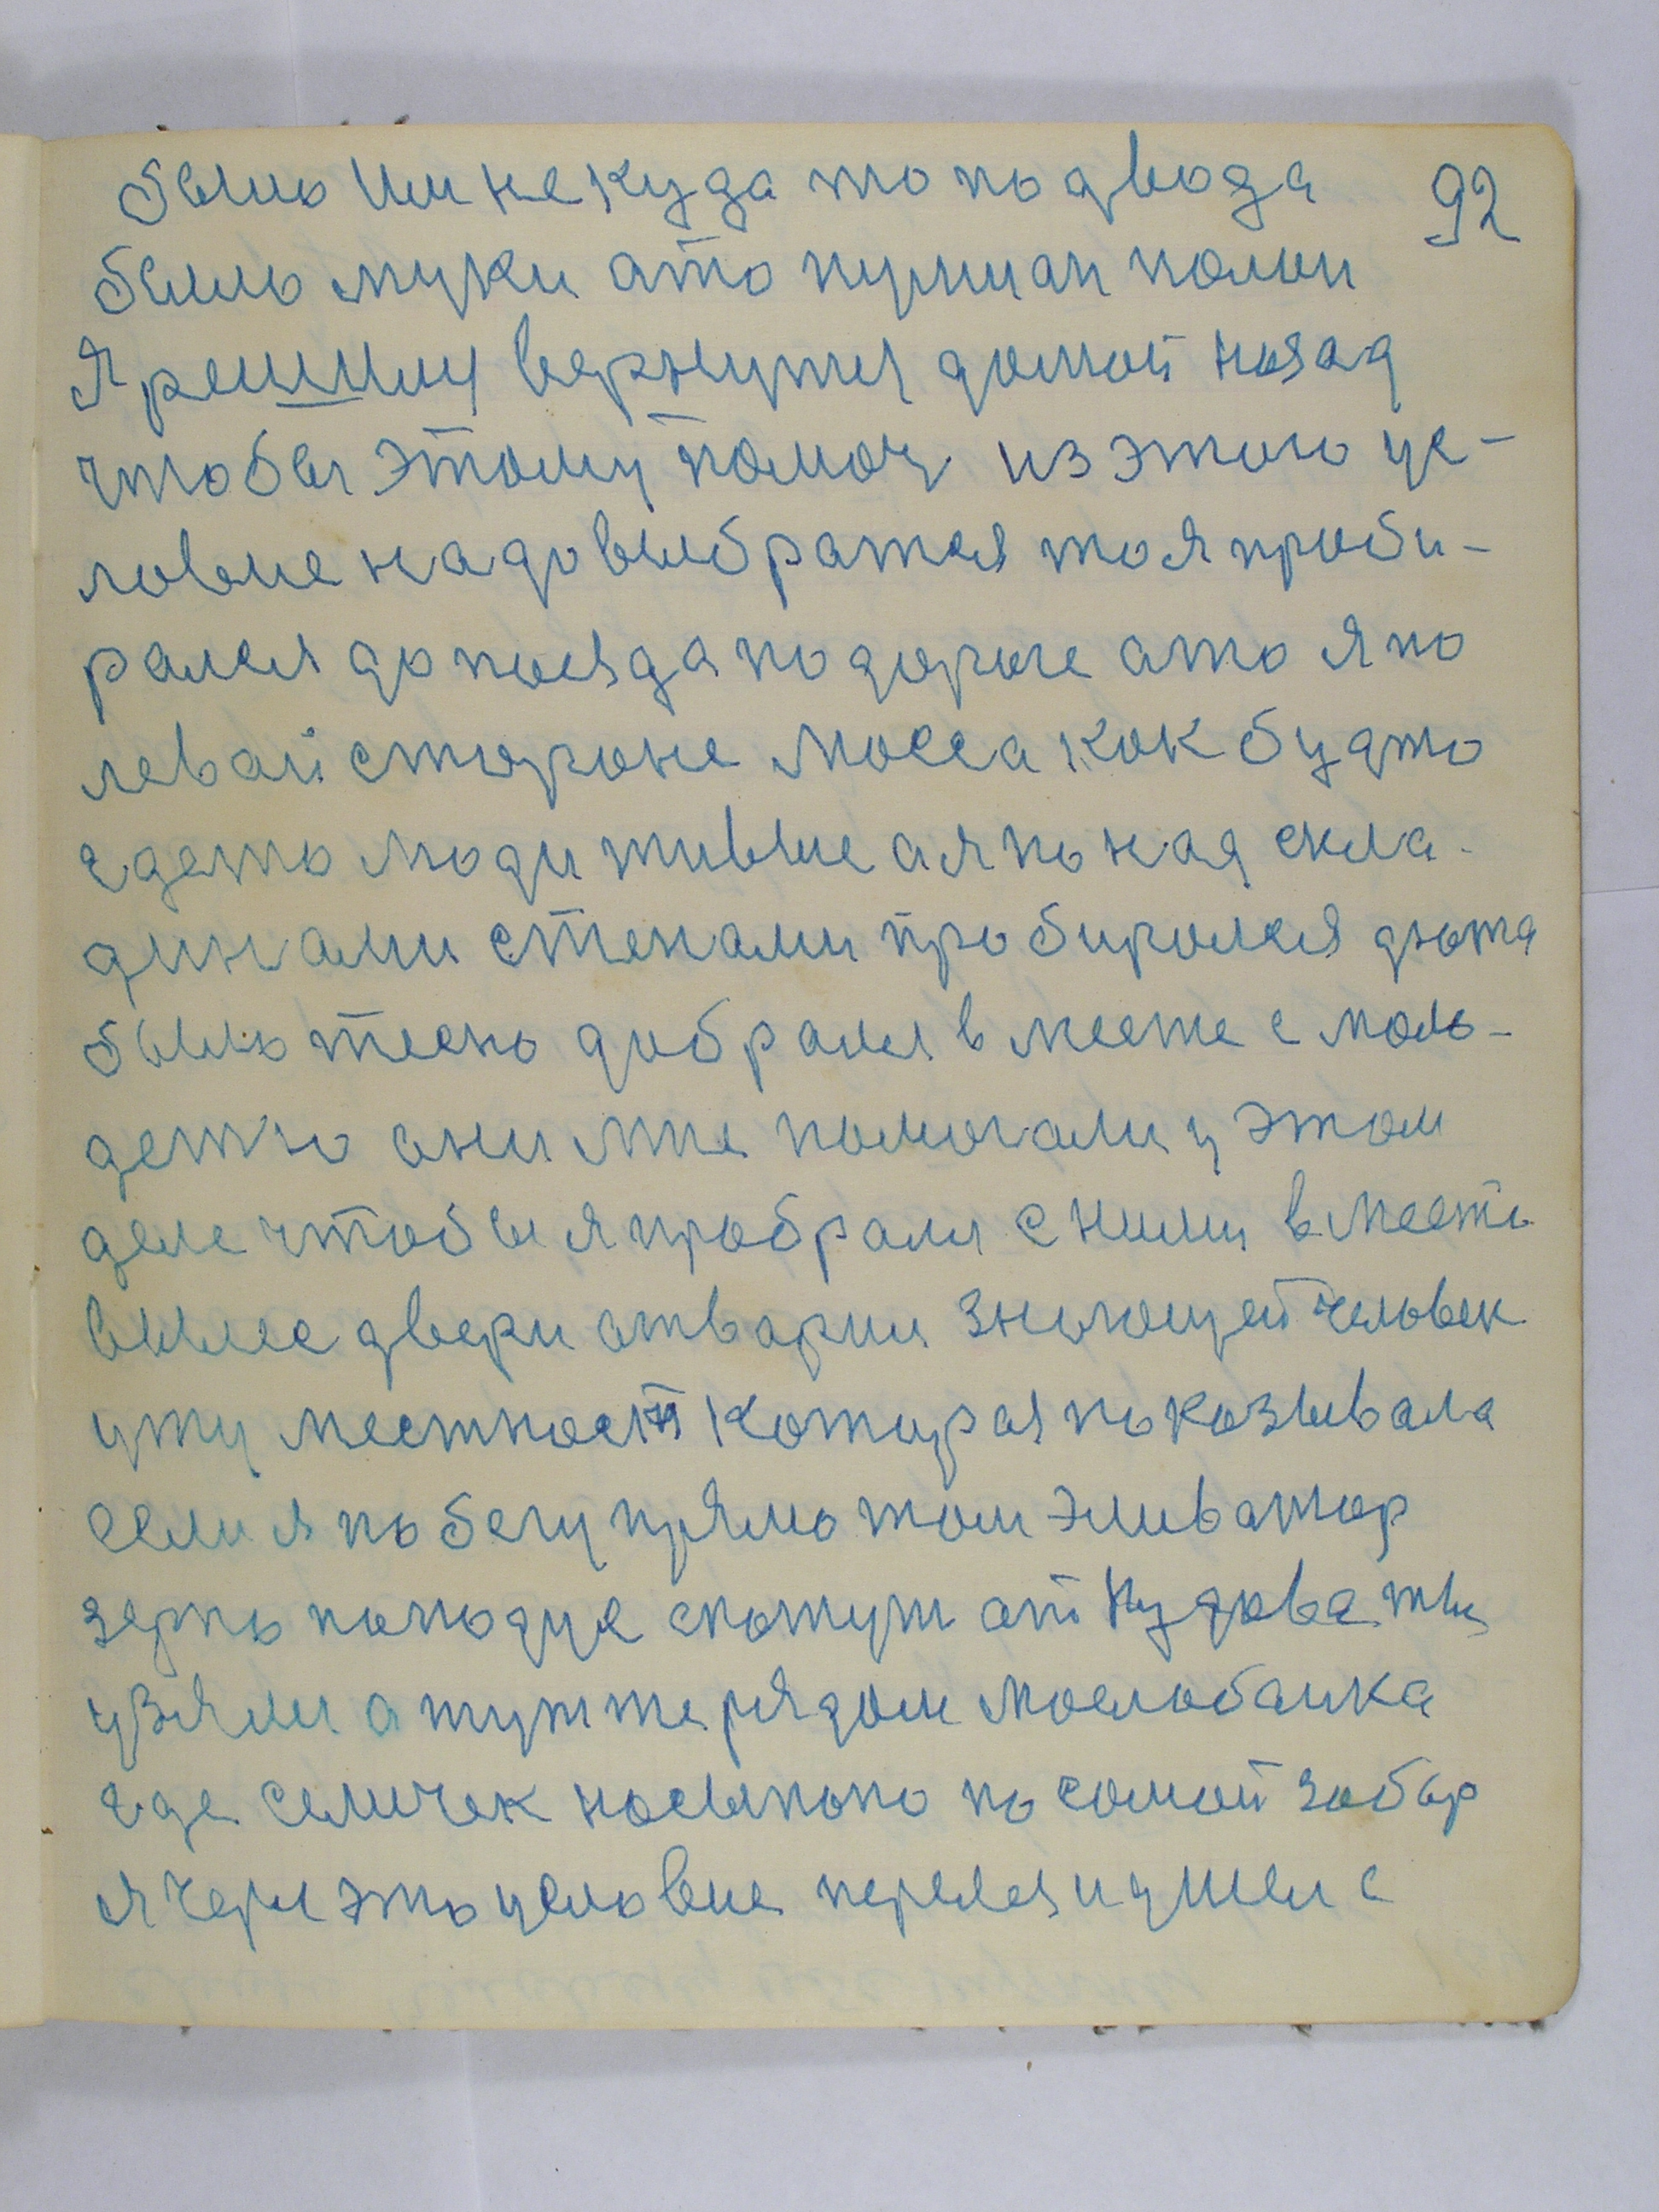 было им некуда то подвода 92
было муки ато пульман полон
Я решил вернутся домой назад
чтобы этому помоч из этого ус-
ловие надо выбратся то я проби-
рался до поезда по дороге ато я по
левай стороне масса как будто
где то люди живые а я по над скла-
динами стенами пробирался дюжа
было тесно добрался в месте с моло-
дежю они мне помогали у этом
деле чтобы я пробрался с ними вместе
двери отварил знающей человек
уту местност которая показывала
если я побегу прямо там эливатор
зерно попадуе спожут от Кудова ты
узяли а тут же рядом маслобаика
где семичек насыпоно по самой забор
я через это условие перелез и ушел с